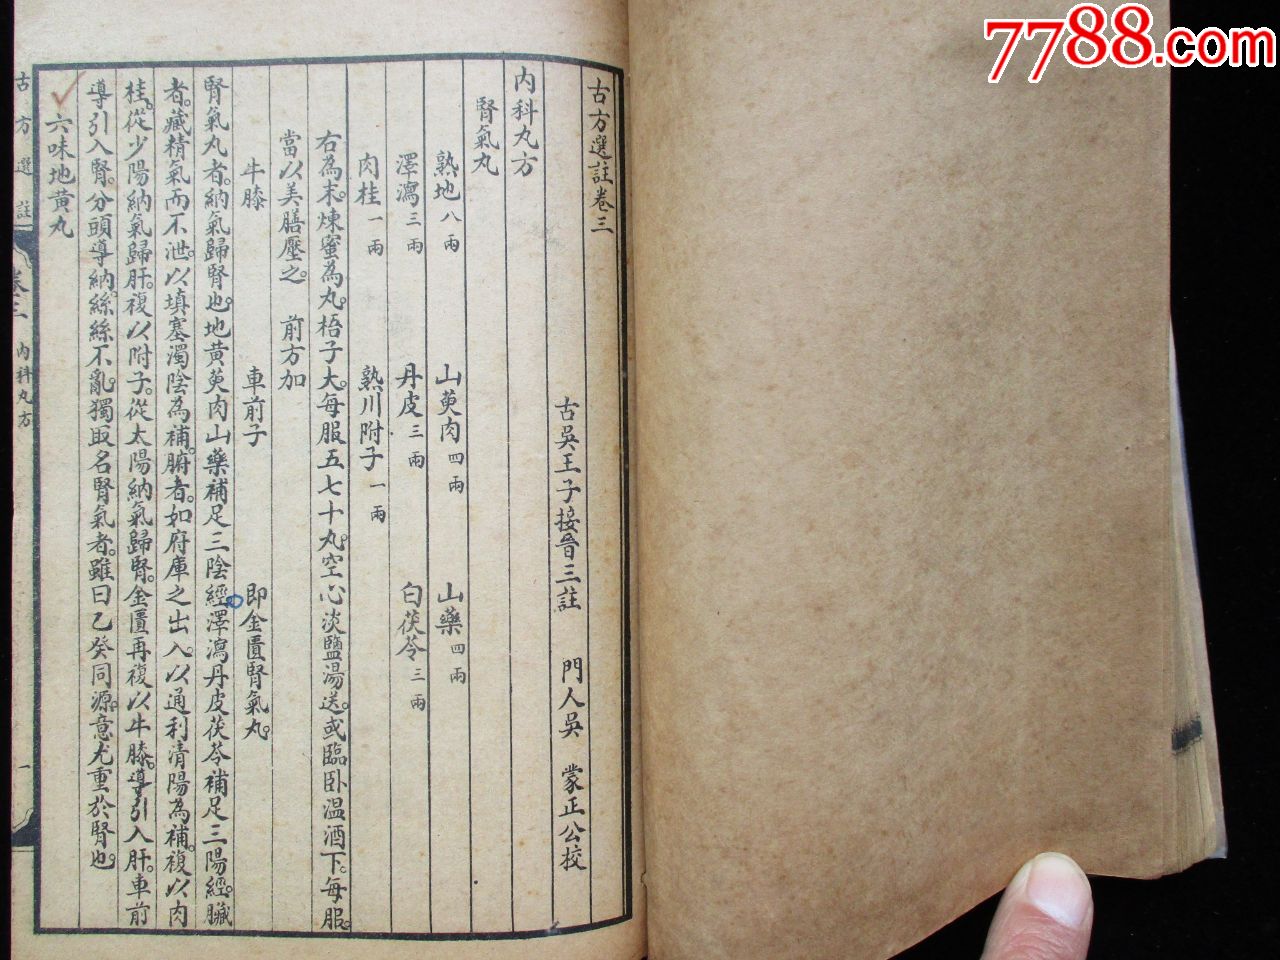 7788.com
古方選註卷三
古吳王子接晉三註 門人吳 蒙正公校
內科丸方
腎氣丸
熟地八兩 山萸肉四兩 山藥四兩
澤瀉三兩 丹皮三兩 白茯苓三兩
肉桂一兩 熟川附子一兩
右為末。煉蜜為丸。梧子大。每服五七十丸。空心淡鹽湯送。或臨卧温酒下。每服。
當以美膳壓之。 前方加
牛膝 車前子 即金匱腎氣丸。
腎氣丸者。納氣歸腎也。地黄萸肉山藥補足三陰經。澤瀉丹皮茯苓補足三陽經。臟
者。藏精氣而不泄。以填塞濁陰為補。腑者。如府庫之出入。以通利清陽為補。複以肉
桂。從少陽納氣歸肝。複以附子。從太陽納氣歸腎。金匱再複以牛膝。導引入肝。車前
導引入腎。分頭導納。絲絲不亂。獨取名腎氣者。雖曰乙癸同源。意尤重於腎也。
六味地黄丸
古方選註 卷三 內科丸方 一